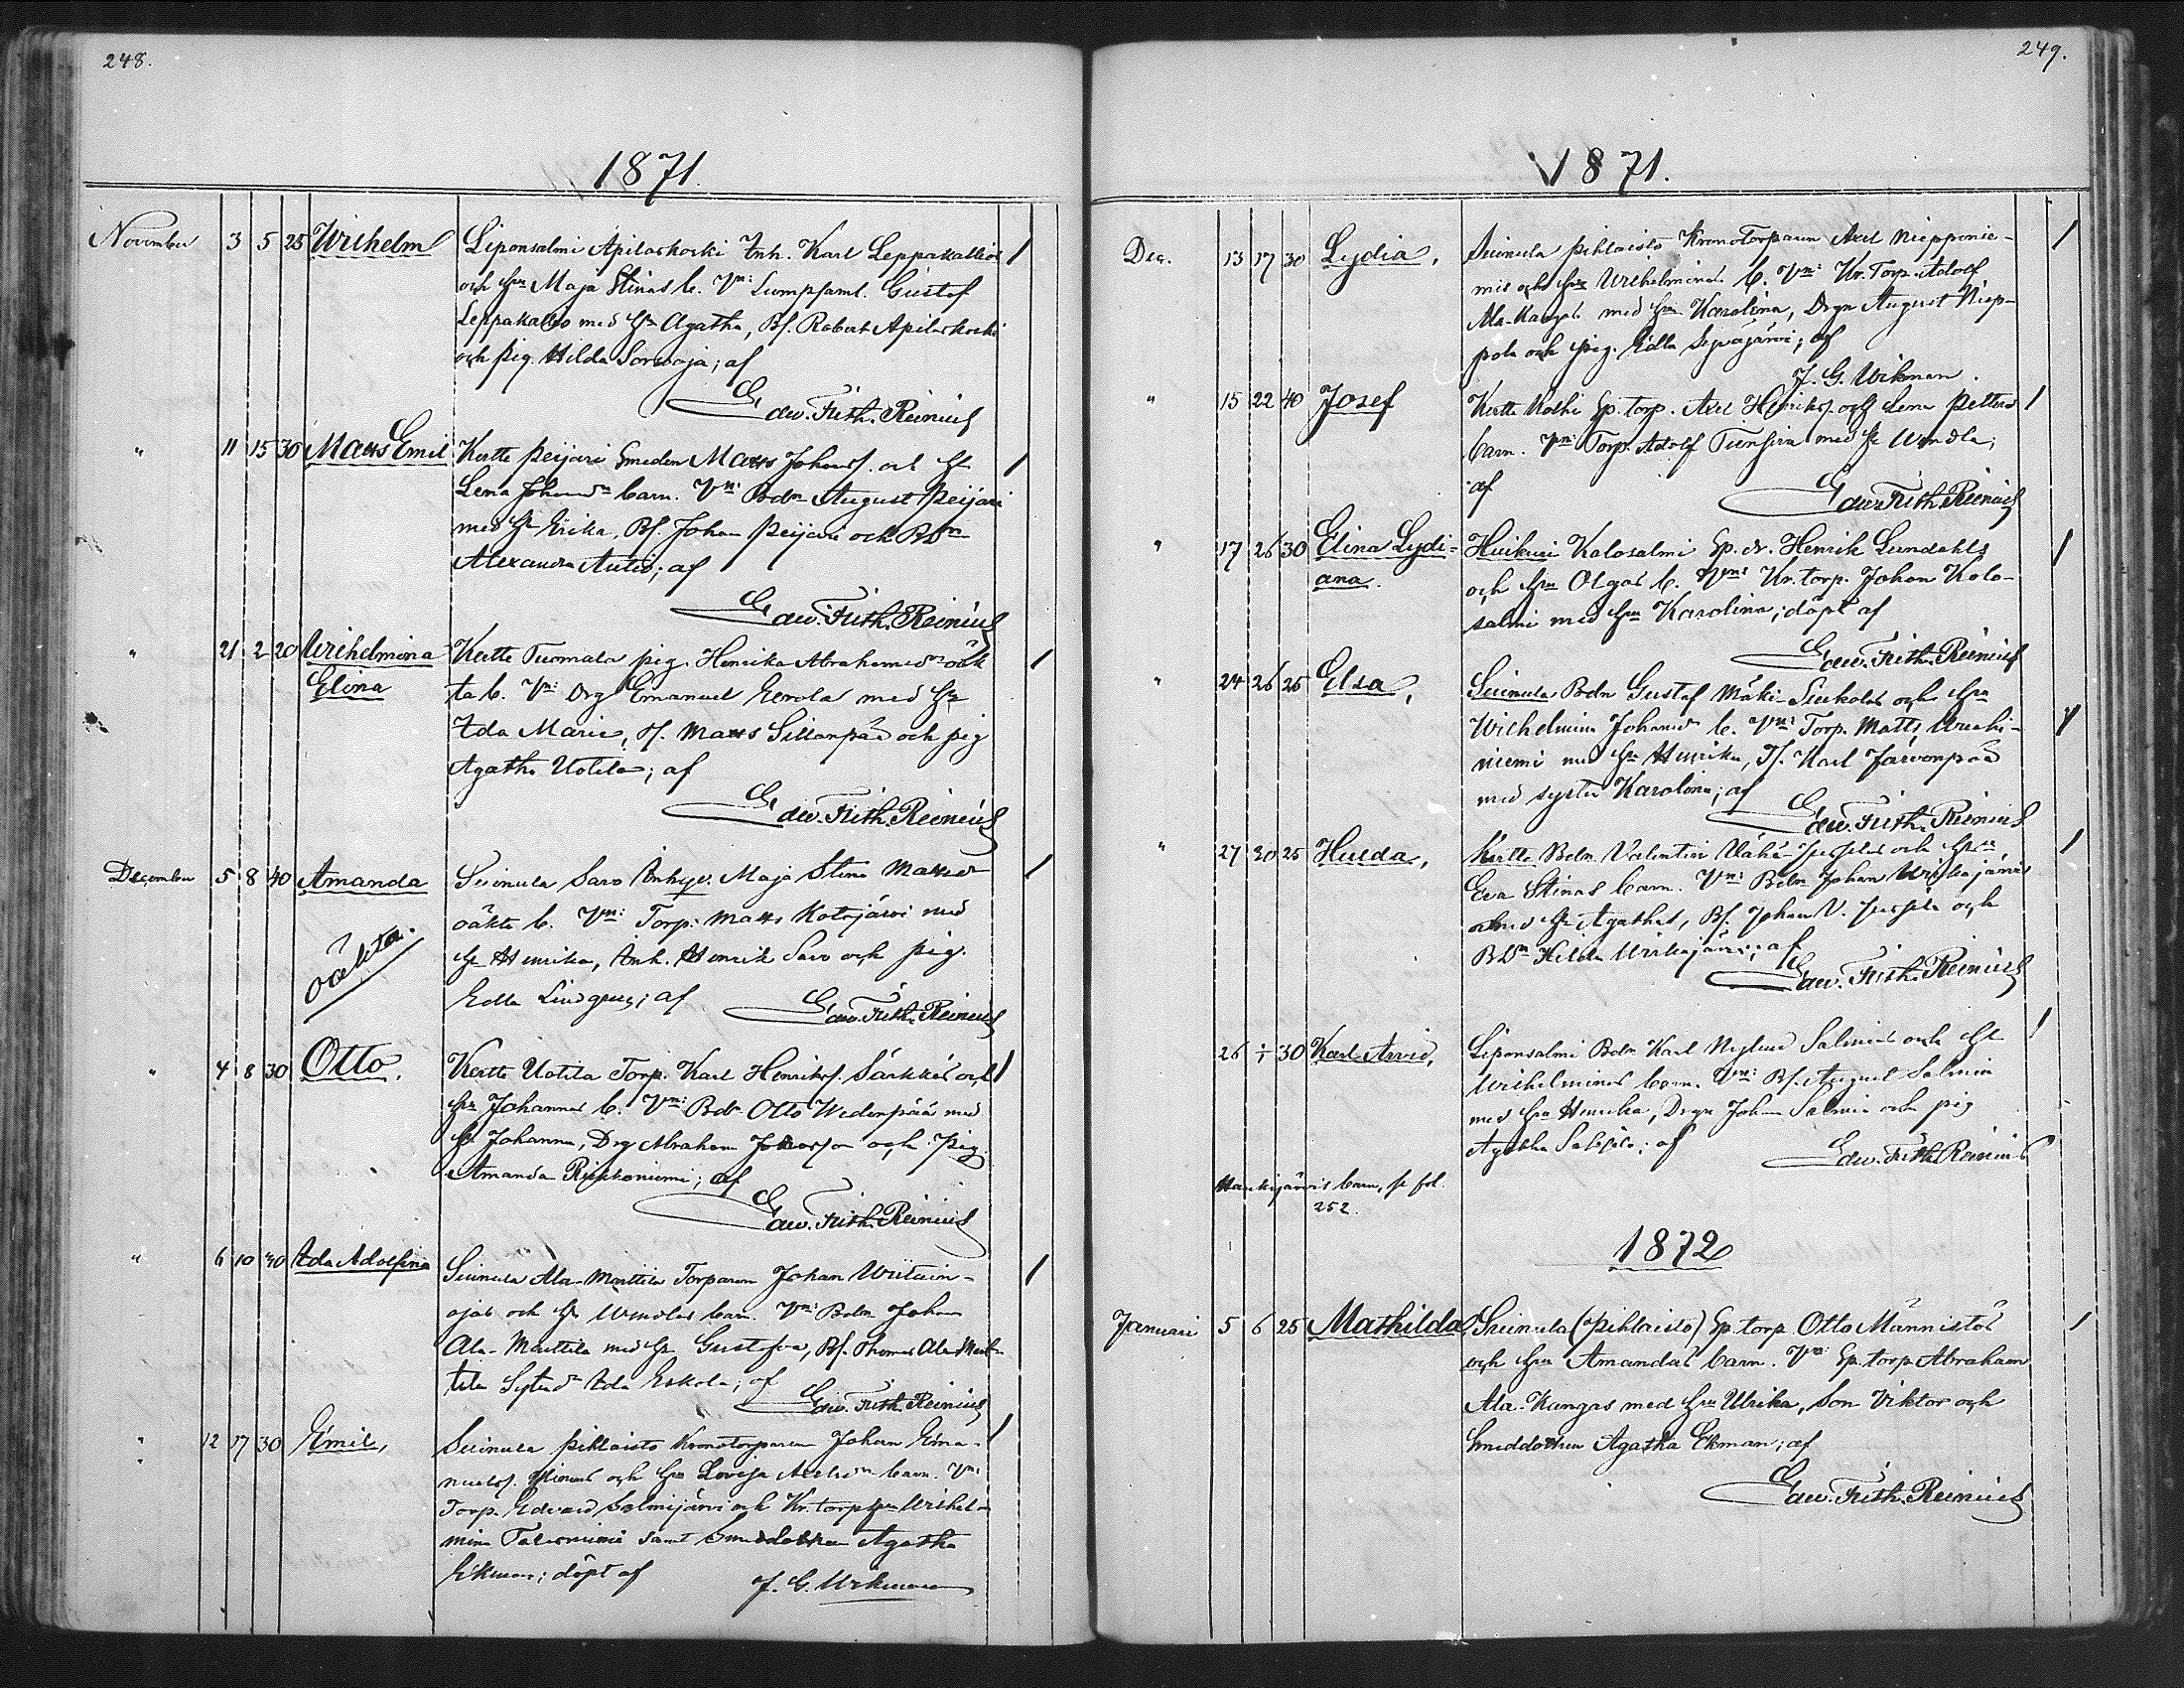 248.
1871.
November 3 5 25 Wilhelm Siponsalmi Apilaskoski Inh. Karl Leppäkallios
och Hu Maja Stinas b. Vn: Lumpsaml. Gustaf
Leppäkallio med Hu Agatha, Bs. Robert Apilaskoski
och pig. Hilda; af
Edw. Frith. Reinius
" 11 15 30 Matts Emil Kertte Peijari Smeden Matts Johans. och Hu
Lena barn. Vn: Bdn August Peijari
med Hu Erika, Bs. Johan Peijari och Bdn
Alexandra Antes; af
Edw. Frith. Reinius
" 21 2 20 Wilhelmina Kertte Tuomala pig. Henrika oäk
Elina ta b. Vn: Drg Emanuel Eerola med Hu
Ida Maria, Matts Sillanpää och pig
Agatha Uotila; af
Edw. Frith. Reinius
December 5 8 40 Amanda Suinula Savo Inhys. Maja Stina
oäkta b. Vn: Torp. Matts Kotojärvi med
oäkta. Hu Henrika, Inh. Henrik Savo och pig.
Edla Lindgren; af Edw. Frith. Reinius
" 4 8 30 Otto. Kertte Uotila Torp. Karl Henrikss. Särkkäs och
Hu Johannas b. Vn: Bdn Otto Wedenpää med
Hu Johanna, Drg Abraham och pig.
Amanda; af
Edw. Frith. Reinius
" 6 10 40 Ida Adolfina Suinula Ala-Marttila Torparen Johan Wiitain-
ojas och Hu Wendlas barn. Vn: Bdn Johan
Ala-Marttila med Hu Gustafva, Bs. Thomas Ala-Mart-
tila Ida Eskola; af
Edw. Frith. Reinius
" 12 17 30 Emil, Suinula Pihlaisto Kronotorparen Johan Ema-
nuels. och Hu Lovisa barn. Vn:
Torp. Edvard Salmijärvi och Kr. torp. Hu Wilhel-
mina samt Smeddottren Agatha
Ekman; döpt af J. G. Wikman
249.
1871.
Dec. 13 17 30 Lydia, Suinula Pihlaisto Kronotorparen Axel Nieppinie-
mis och Hu Wilhelminas b. Vn: Kr. Torp. Adolf
Ala-Kangas med Hu Karolina, Drgn August Niep-
pola och pig. Edla Sepäjärvi; af
J. G. Wikman.
" 15 22 40 Josef Kertte Koski Sp. torp. Axel Henriks. och Lena Petters
barn. Vn: Torp. Adolf med Hu Wendla;
af
Edw. Frith. Reinius
" 17 26 30 Elina Lydi- Huikuri Kalosalmi Sp. Henrik Lundahls
ana. och Hu Olgas b. Vn: Kr. torp. Johan Kolo-
salmi med Hu Karolina; döpt af
Edw. Frith. Reinius
" 24 26 25 Elsa, Suinula Bdn Gustaf Mäki- och Hu
Wilhelmina b. Vn: Torp. Matts
niemi med Hu Henrika, Ts. Karl Järvenpää
med syster Karolina; af
Edw. Frith. Reinius
" 27 30 25 Hulda, Kertte Bdn Valentin Vähä- och Hu
Eva Stinas barn. Vn: Bdn Johan Wirkajärvi
med Hu Agatha, Bs. Johan V. och
Bdn Hilda Wirkajärvi; af
Edw. Frith. Reinius
26 ÷ 30 Karl Arvid, Siponsalmi Bdn Karl Salmis och Hu
Wilhelminas barn. Vn: Bs. August Salmin
med Hu Henrika, Drgn Johan Salmin och pig
Agatha; af Edw. Frith. Reinius
barn, se fol.
252.
1872
Januari 5 6 25 Mathilda Suinula (Pihlaisto) Sp. torp. Otto Männistös
och Hu Amandas barn. Vn: Sp. torp. Abraham
Ala-Kangas med Hu Ulrika, Son Viktor och
Smeddottren Agatha Ekman; af
Edw. Frith. Reinius